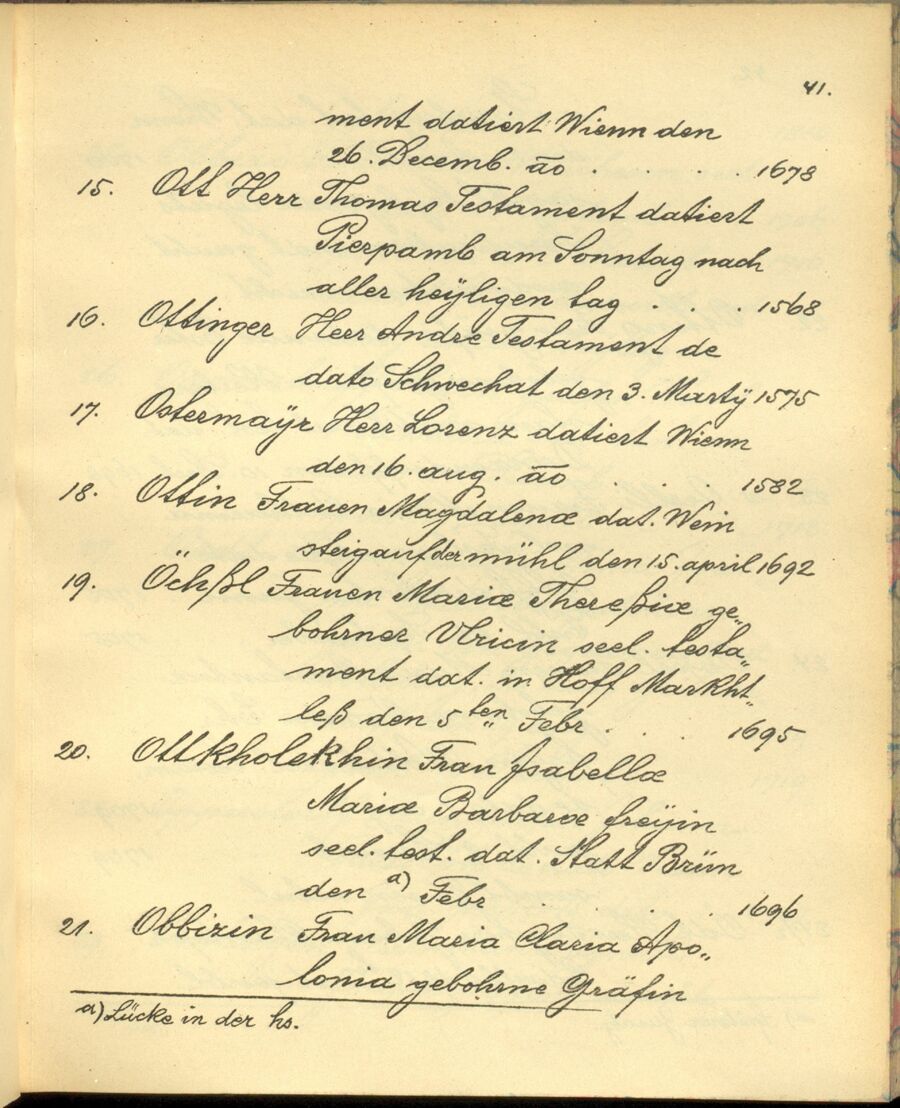 41.
ment datiert Wienn den
26. Decemb. āo . . . . 1678
15. Ott Herr Thomas Testament datiert
Pierpamb am Sonntag nach
aller heÿligen tag . . . . 1568
16. Ottinger Herr Andre Testament de
dato Schwechat den 3. Martÿ 1575
17. Ostermaÿr Herr Lorenz datiert Wienn
den 16. aug. āo . . . . 1582
18. Ottin Frauen Magdalenæ dat. Wein
steig auf der mühl den 15. april 1692
19. Öchßl Frauen Mariæ Thereßiæ ge„
bohrner Vlricin seel. testa„
ment dat. in Hoff Markht„
leß den 5ten Febr . . . . 1695
20. Ottkholekhin Frau Jsabellæ
Mariæ Barbaræ freÿin
seel. test. dat. Statt Brün
den a) Febr . . . . 1696
21. Obbizin Frau Maria Claria Apo„
lonia gebohrne Gräfin
a) Lücke in der hs.